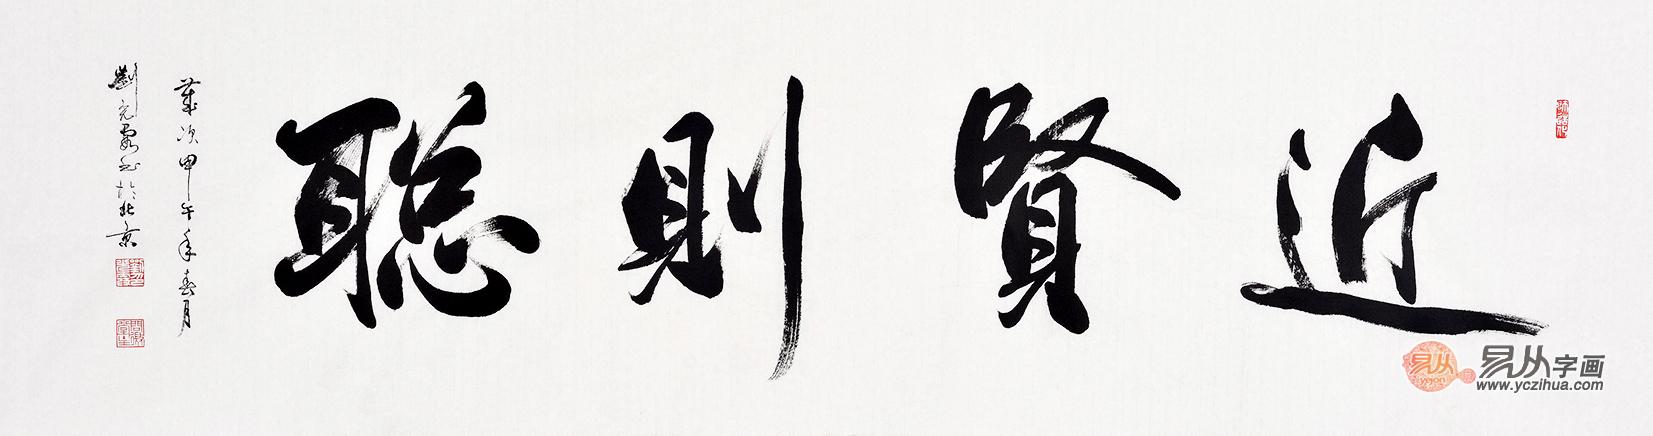 近賢則聰
歲次甲午年春月
劉元霞书於北京
易从
yejon
易从字画
www.yczihua.com